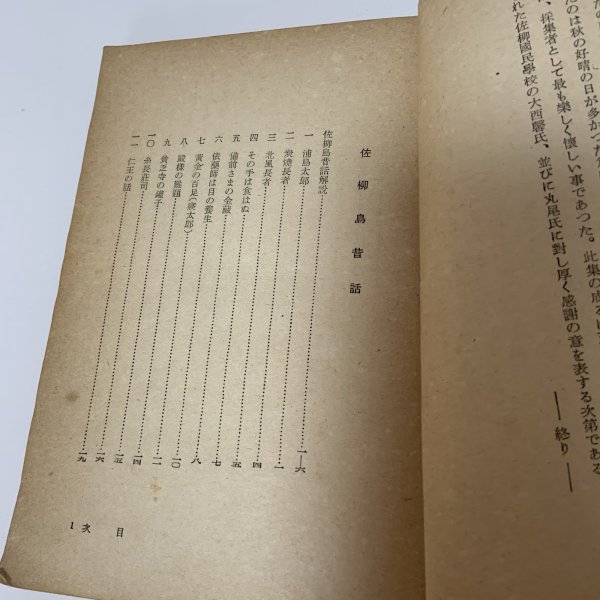 たのは秋の好晴の日が多かつた
、採集者として最も樂しく懷しい事であつた。此集の成るに
れた佐柳國民學校の大西馨氏、並びに丸尾氏に對し厚く感謝の意を表する次第である
── 終り ──
佐柳島昔話
佐柳島昔話解說……一—六
一 浦島太郎……一
二 炭燒長者……
三 北風長者……四
四 その手は食はぬ……五
五 備前さまの金藏……七
六 俵藥師は目の養生……八
七 黃金の百足(寢太郎)……一〇
八 殿樣の難題……一二
九 貧乏寺の鑵子……一五
一〇 糸長莊司……一六
一一 仁王の話……一九
目次 1